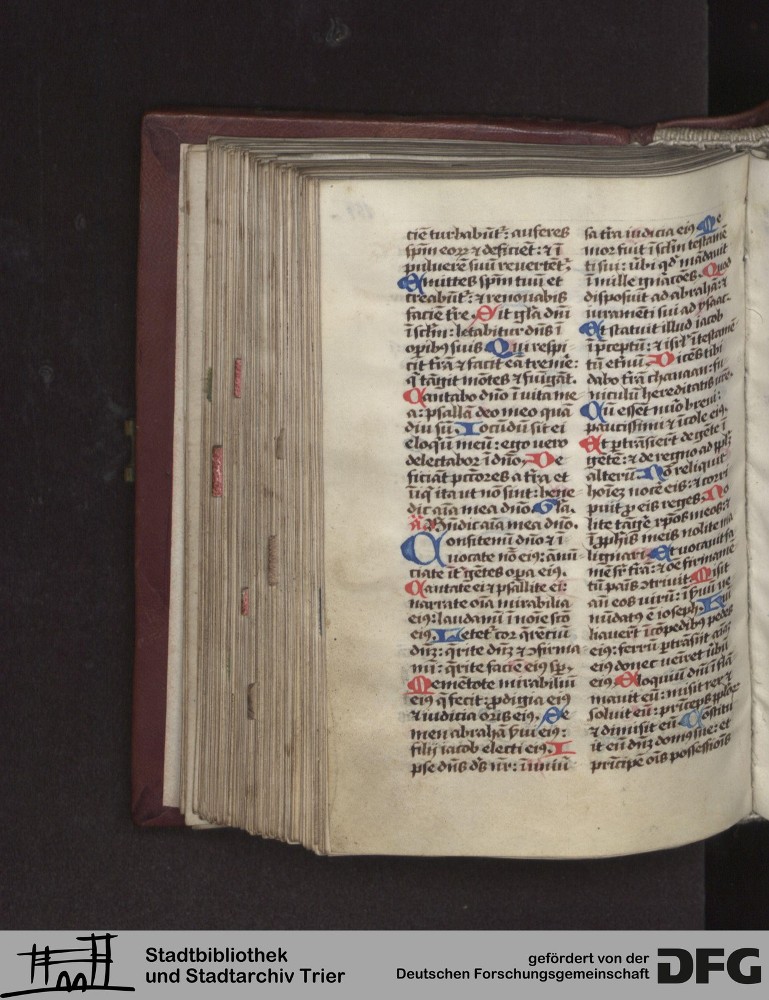 ciē turbabūt᷒: auferes
spm̄ eoꝝ ⁊ deficiēt: ⁊ ī
pulverē suū revertēt᷒
Emittes spm̄ tuū et
creabūt᷒: ⁊ renovabis
faciē t̄re. Sit gl̄a dn̄i
ī sc̄lm: letabitur dn̄s ī
opib9 suis Qui respi-
cit t̄rā ⁊ facit eā tremē:
q̄ tāgit mōtes ⁊ fūigāt.
Cantabo dn̄o ī vita me
a: psallā deo meo quā
diu sū. Iocūdū sit ei
eloqū meū: ego vero
delectabor ī dn̄o. De
ficiāt pctōres a t̄ra et
īiq̄ ita ut nō sint: bene
dic aīa mea dn̄o. Gl̄a.
Bn̄dic aīa mea dn̄o.
Confitemī dn̄o ⁊ ī
vocate nō ei9: ānū
ciate īt᷒ gētes oꝑa ei9.
Cantate ei ⁊ psallite ei:
narrate oīa mirabilia
ei9: laudamī ī noīe sc̄o
ei9. Letet᷒ cor q̄rētiū
dn̄z: q̄rite dn̄z ⁊ ɔfirma
mī: q̄rite faciē ei9 sp̄.
Memētote mirabiliū
ei9 q̄ fecit: ꝓdigia ei9
⁊ iudicia oris ei9. Se
men abrahā s̄vi ei9:
filij iacob electi ei9. I
pse dn̄s d̄s nr̄: ī univ̄
sa t̄ra iudicia ei9 Me
mor fuit ī sc̄lm testamē
ti sui: v̄bi qd̄ mādavit
ī mille gn̄acōes. Quod
disposuit ad abrahā: ⁊
iuramēti sui ad ysaac.
Et statuit illud iacob
ī p̄ceptū: ⁊ isrl̄ ī testamē
tū et̄nū. Dicēs tibi
dabo t̄rā chanaan: fu
niculū hereditatis vr̄e.
Cū essēt nūo brevi:
paucissimi ⁊ īcole ei9.
Et ꝑtrāsierūt de gēte ī
gētē: ⁊ de regno ad ppl̄m
alterū. Nō reliquit
hoīez nocē eis: ⁊ corri
puit ꝓ eis reges. No
lite tāgē xp̄os meos: ⁊
ī ꝓph̄is meis nolite ma
lignari. Et vocavit fa
mē sr̄ t̄rā: ⁊ oē firmamē
tū pāis ɔtrivit. Misit
an̄ eos virū: ī s̄vū ve
nūdat9 ē ioseph. Hu
liaverūt ī cōpedib9 pedes
ei9: ferrū ꝑtrāsiit aīaz
ei9 donec veīret v̄bū
ei9. Eloquiū dn̄i ī flā
mavit eū: misit rex ⁊
solvit eū: prīceps ppl̄oꝝ
⁊ dimisit eū. Cōstitu
it eū dn̄z dom9 sue: et
prīcipē oīs possessiōis
Stadtbibliothek
und Stadtarchiv Trier
gefördert von der
Deutschen Forschungsgemeinschaft
DFG